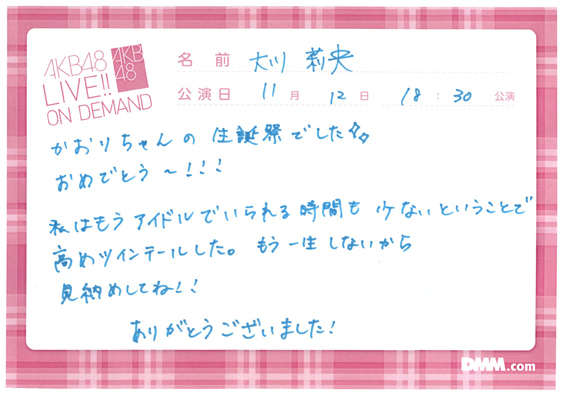 AKB48
LIVE!!
ON DEMAND
AKB
48
名前 大川 莉央
公演日 11月 12日 18:30 公演
かおりちゃんの 生誕祭でした
おめでとう〜!!!
私はもうアイドルでいられる時間も 少ないということで
高めツインテールした。もう一生しないから
見納めしてね!!
ありがとうございました!
DMM.com